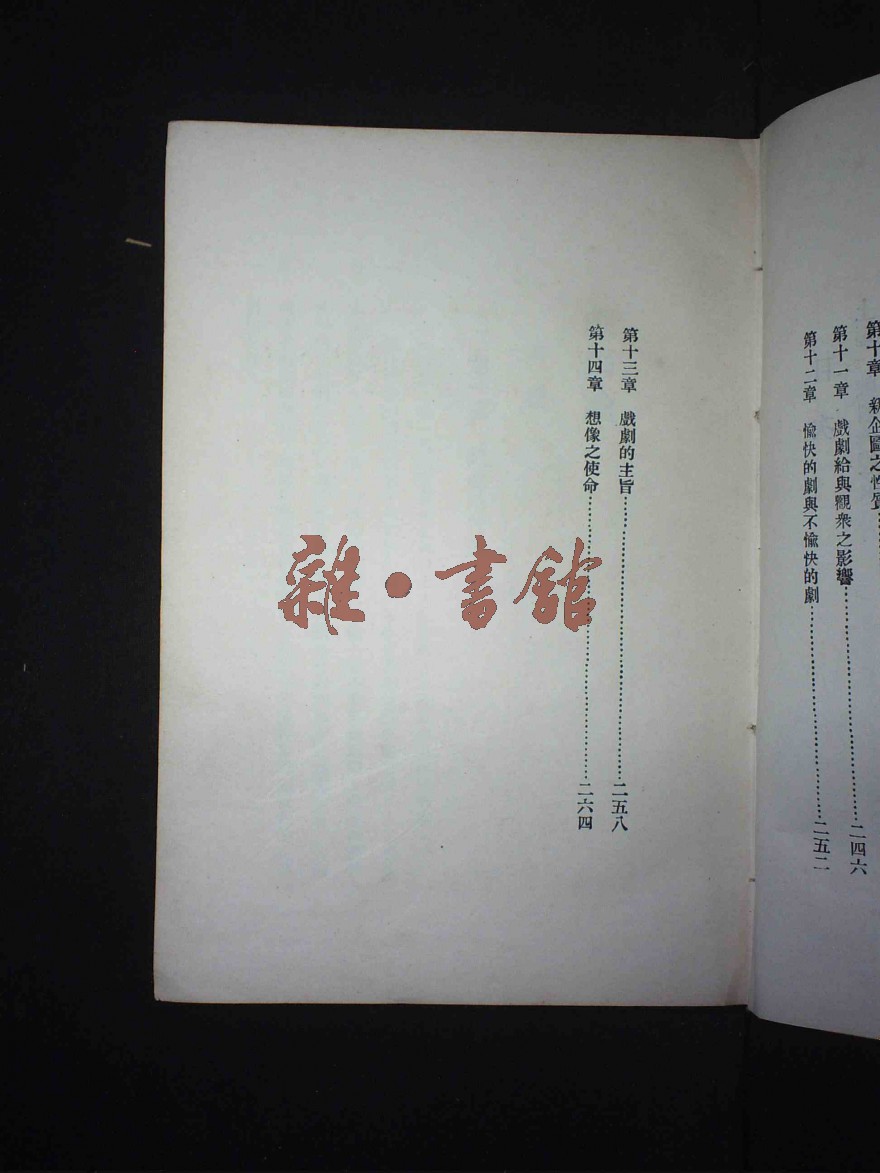 第十章 新企圖之性質
第十一章 戲劇給與觀衆之影響……二四六
第十二章 愉快的劇與不愉快的劇……二五二
第十三章 戲劇的主旨……二五八
第十四章 想像之使命……二六四
雜·書館